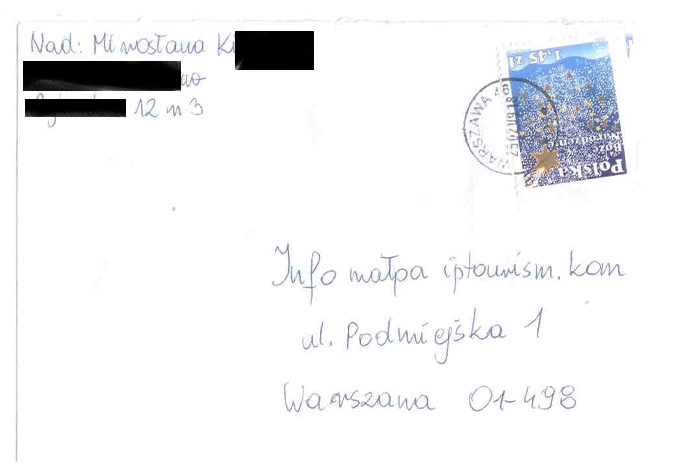 Nad: Mirosława K
12 m 3
WARSZAWA
25 02 09 18
1,45 ZŁ
Boże
Narodzenie
Polska
Info małpa iptourism.kom
ul. Podmiejska 1
Warszawa 01-498